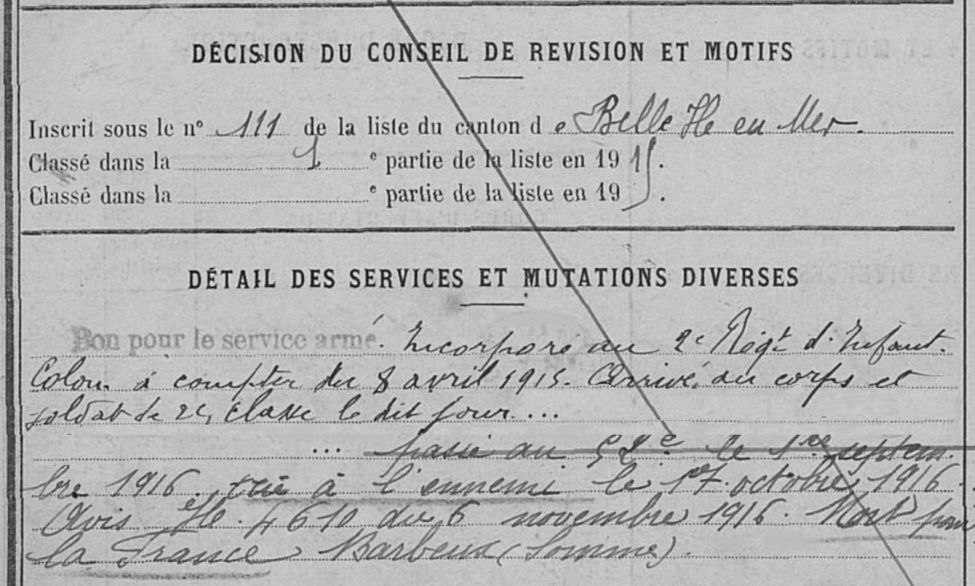 DÉCISION DU CONSEIL DE REVISION ET MOTIFS
Inscrit sous le nº 111 de la liste du canton d e Belle Ile en Mer.
Classé dans la 1 e partie de la liste en 19 15.
Classé dans la e partie de la liste en 19 .
DÉTAIL DES SERVICES ET MUTATIONS DIVERSES
Bon pour le service armé. Incorporé au 2e Régt d'Infant.
Colon. à compter du 8 avril 1915. Arrivé au corps et
soldat de 2e classe le dit jour...
... passé au 52e le 1re septem
bre 1916 tué à l'ennemi le 17 octobre 1916.
Avis 4610 du 6 novembre 1916. Mort pour
la France Barbeux (Somme).